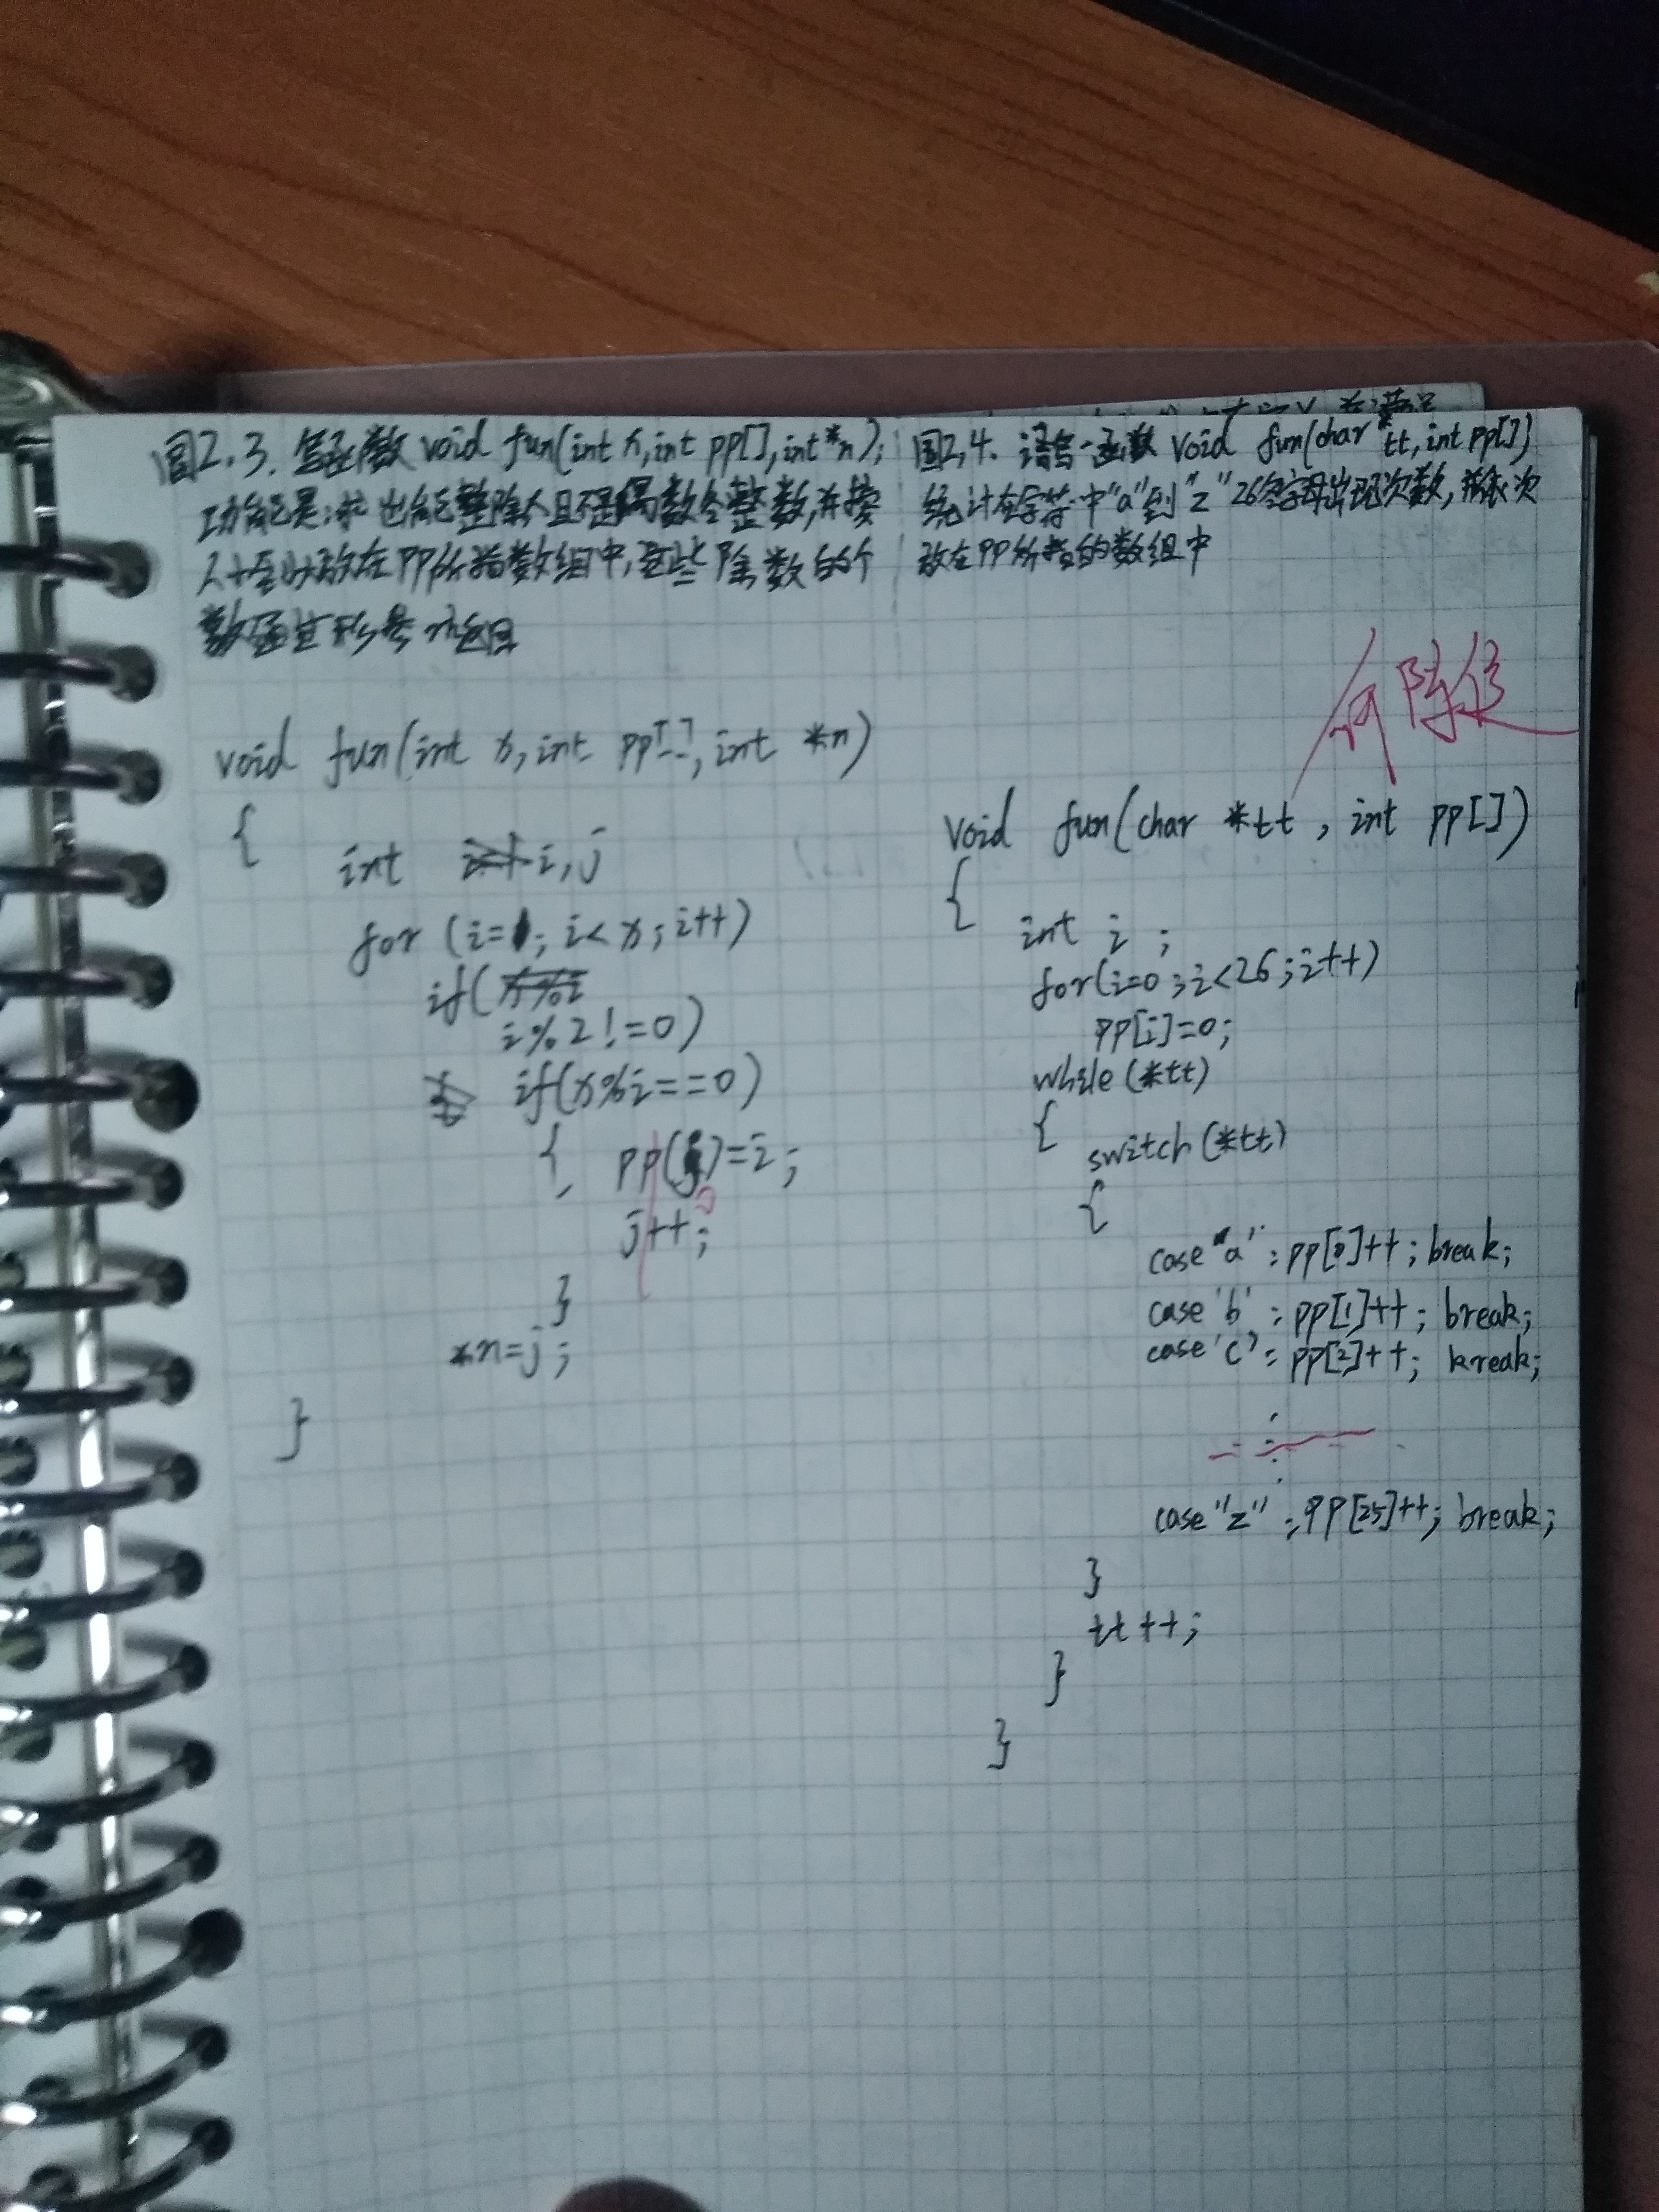 图2.3. 写函数 void fun(int x,int pp[],int*n);
功能是:求出能整除x且不是偶数各整数,并按
从小至小放在PP所指数组中,这些除数的个
数通过形参n返回
void fun(int x,int pp[],int *n)
{
int i,j
for (i=1; i<x;i++)
if(
i%2!=0)
if(x%i==0)
{ pp(j)=i;
j++;
}
*n=j;
}
图2,4. 函数 void fun(char *tt,int pp[])
统计在字符中"a"到"z"26个字母出现次数,并依次
放在PP所指的数组中
void fun(char *tt , int pp[])
{
int i ;
for(i=0;i<26;i++)
pp[i]=0;
while(*tt)
{
switch(*tt)
{
case "a": pp[0]++; break;
case 'b' : pp[1]++; break;
case 'c' : pp[2]++; break;
case "z" : pp[25]++; break;
}
tt++;
}
}